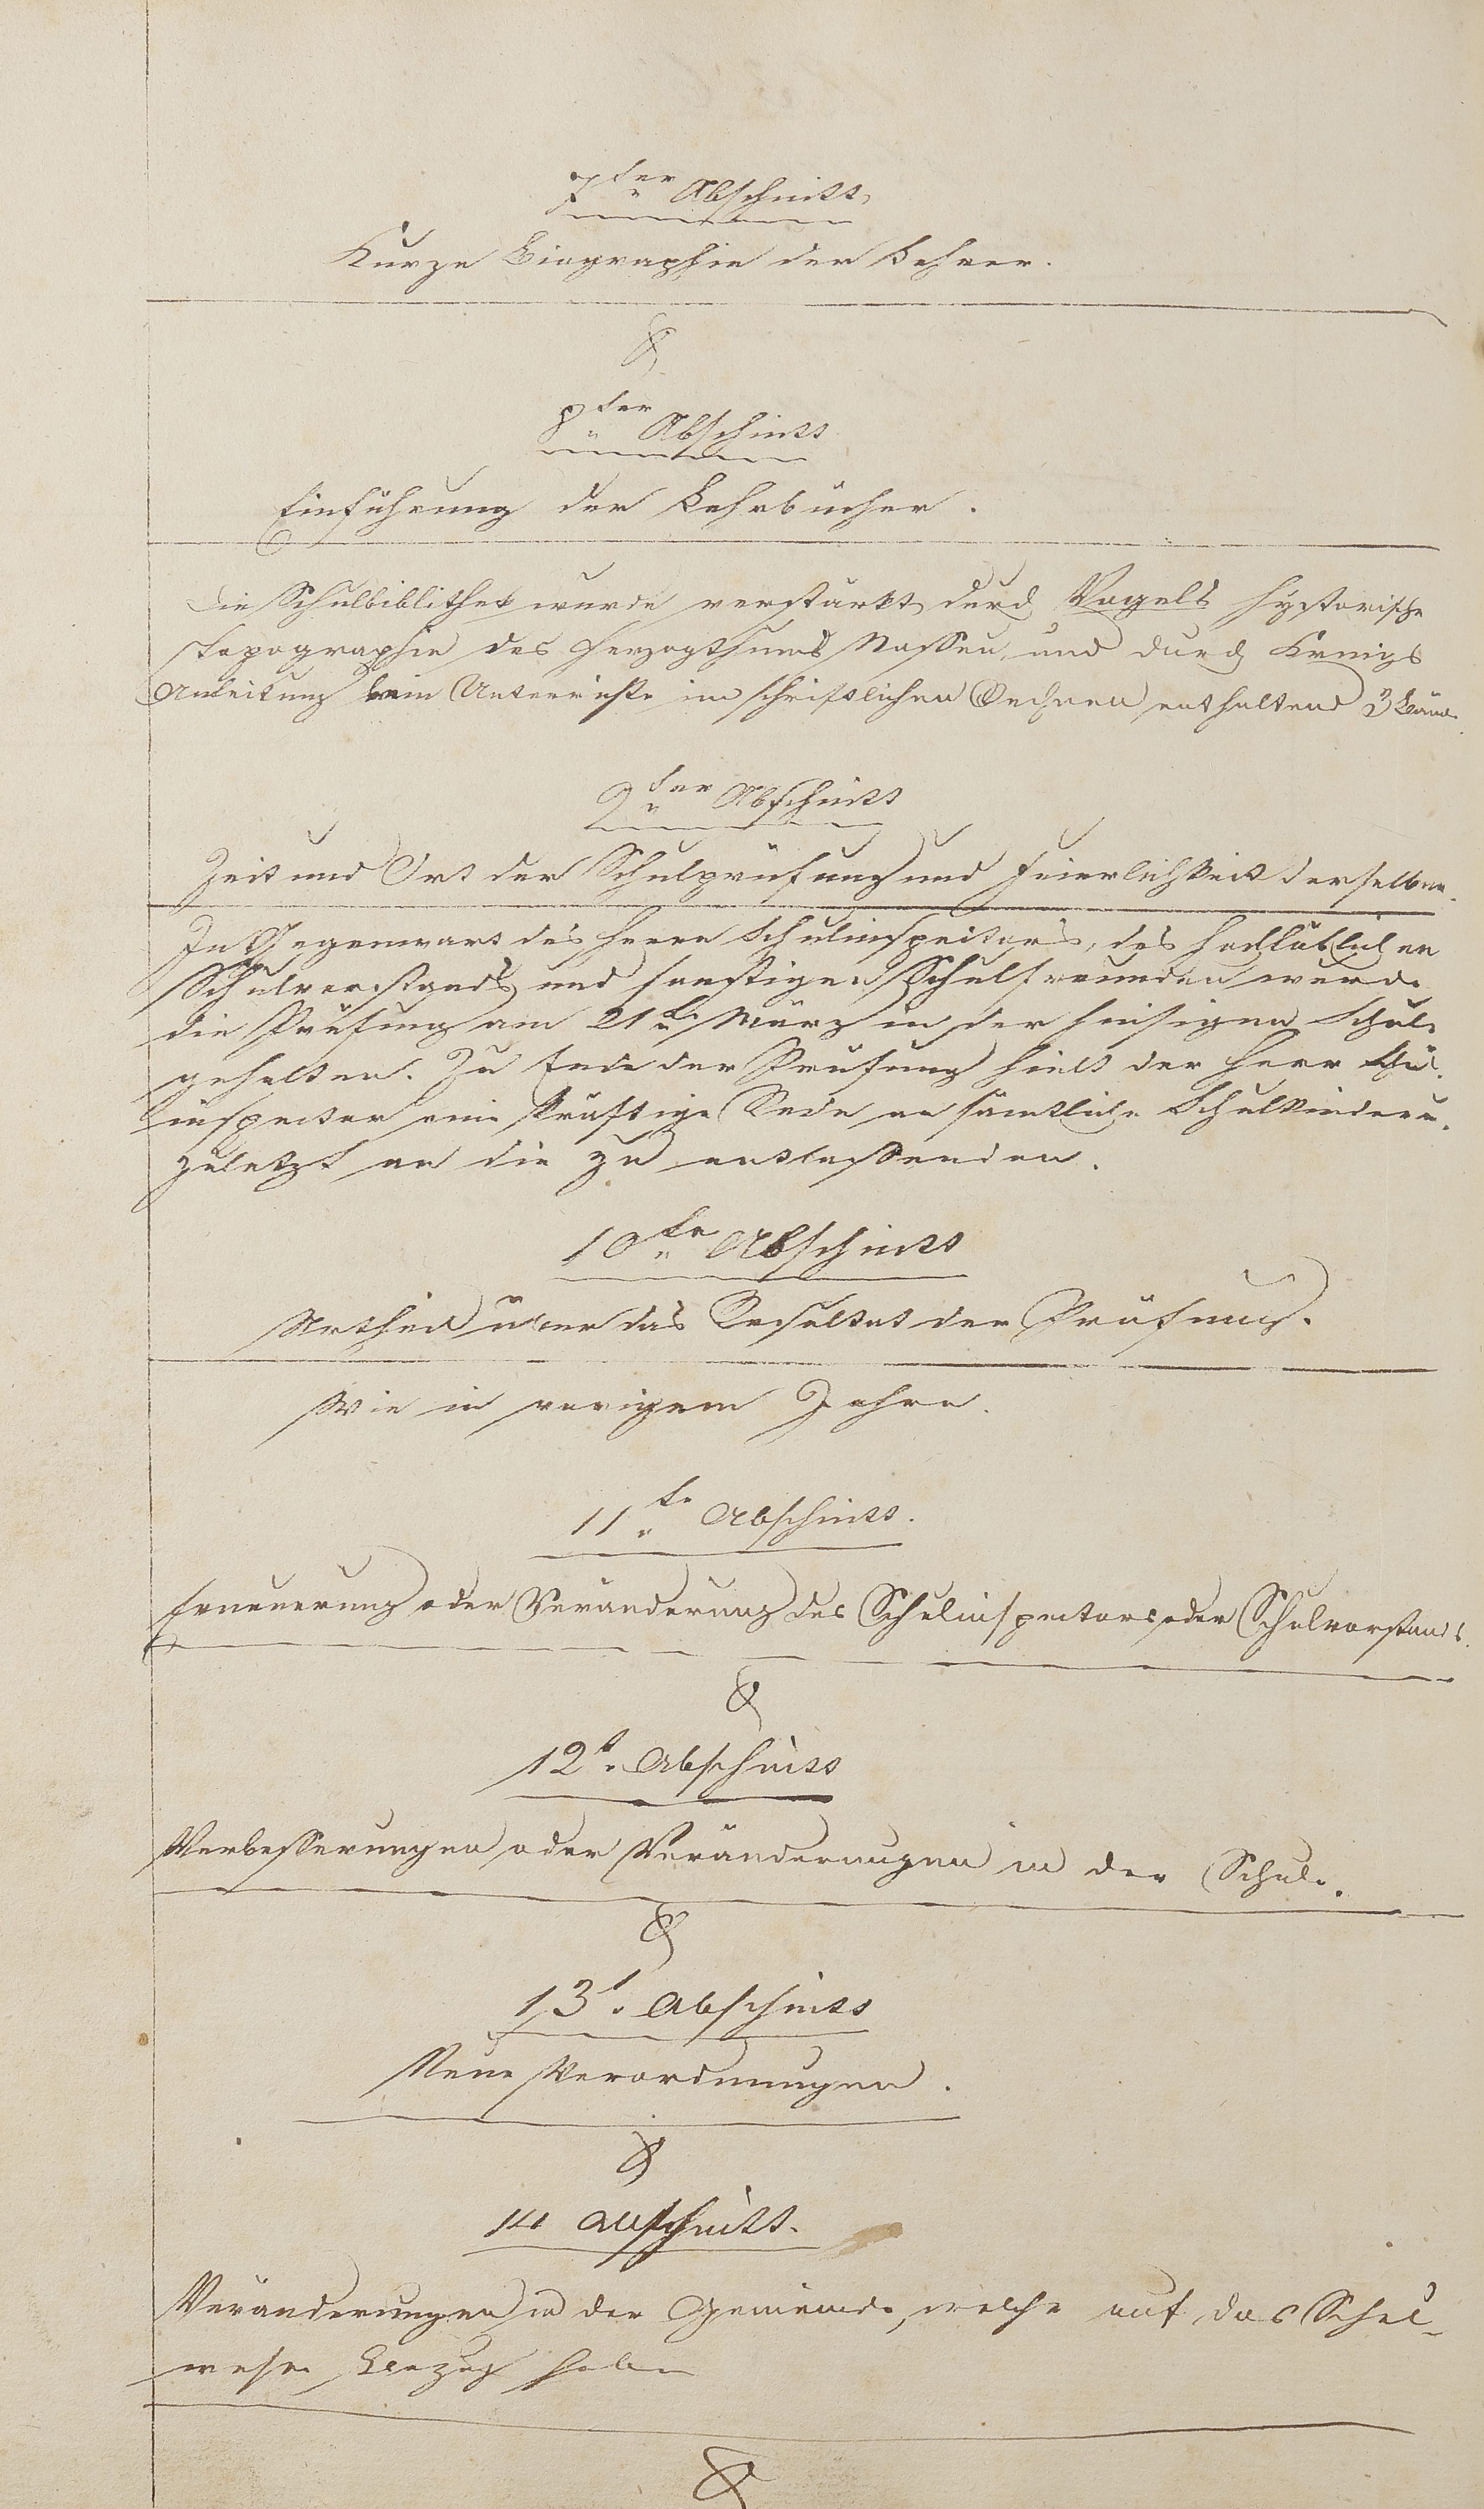 7ter Abschnitt,
Kurze Biographie der Lehrer.
8ter Abschnitt
Einführung der Lehrbücher.
Die Schulbiblithek wurde verstärkt durch Vogels hystorische
Topographie des Herzogthums Nassau, und durch
Anleitung beim Unterrichte im schriftlichen Rechnen enthaltend 3 Bände.
9ter Abschnitt
Zeit und Ort der Schulprüfung und Feierlichkeit derselben.
In Gegenwart des Herrn Schulinspectors, des hochlöblichen
Schulvorstands und sonstigen Schulfreunden wurde
die Prüfung am 21ten März in der hiesigen Schule
gehalten. Zu Ende der Prüfung hielt der Herr Schul
inspector eine kräftige Rede an sämtliche Schulkinder u.
zuletzt an die zu entlassenden.
10te Abschnitt
Urtheil über das Resultat der Prüfung.
Wie in vorigem Jahre.
11te Abschnitt.
Erneuerung oder Veränderung des Schulinspectors oder Schulvorstands.
12t Abschnitt
Verbesserungen oder Veränderungen in der Schule.
13t Abschnitt
Neue Verordnungen.
14 Abschnitt.
Veränderungen in der Gemeinde, welche auf das Schul-
wesen Bezug haben